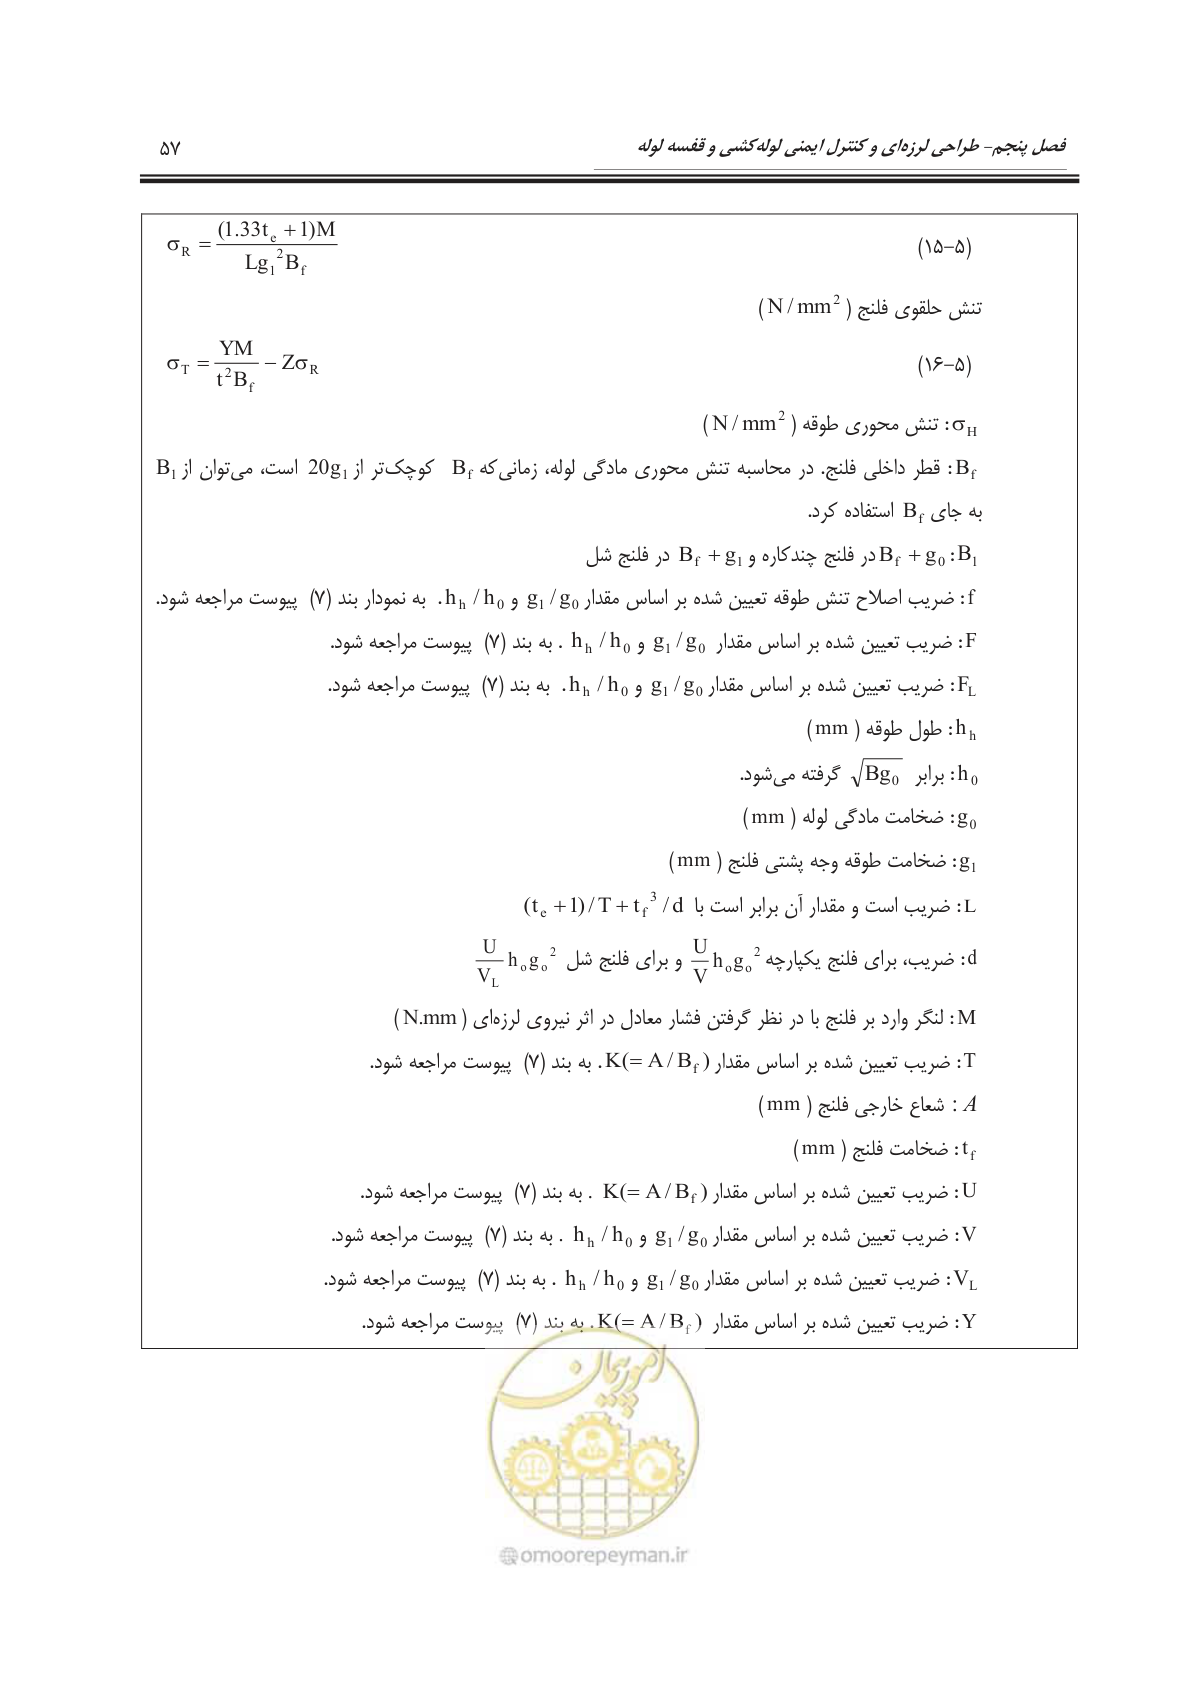 فصل پنجم– طراحی لرزه‌ای و کنترل ایمنی لوله‌کشی و قفسه لوله ۵۷
σ_R = (1.33t_e + 1)M / Lg_1^2 B_f (۵–۱۵)
تنش حلقوی فلنج (N/mm^2)
σ_T = YM / t^2 B_f − Zσ_R (۵–۱۶)
σ_H: تنش محوری طوقه (N/mm^2)
B_f: قطر داخلی فلنج. در محاسبه تنش محوری مادگی لوله، زمانی‌که B_f کوچک‌تر از 20g_1 است، می‌توان از B_1
به جای B_f استفاده کرد.
B_1: B_f + g_0 در فلنج چندکاره و B_f + g_1 در فلنج شل
f: ضریب اصلاح تنش طوقه تعیین شده بر اساس مقدار g_1/g_0 و h_h/h_0. به نمودار بند (۷) پیوست مراجعه شود.
F: ضریب تعیین شده بر اساس مقدار g_1/g_0 و h_h/h_0 . به بند (۷) پیوست مراجعه شود.
F_L: ضریب تعیین شده بر اساس مقدار g_1/g_0 و h_h/h_0. به بند (۷) پیوست مراجعه شود.
h_h: طول طوقه (mm)
h_0: برابر √Bg_0 گرفته می‌شود.
g_0: ضخامت مادگی لوله (mm)
g_1: ضخامت طوقه وجه پشتی فلنج (mm)
L: ضریب است و مقدار آن برابر است با (t_e + 1)/T + t_f^3/d
d: ضریب، برای فلنج یکپارچه U/V h_o g_o^2 و برای فلنج شل U/V_L h_o g_o^2
M: لنگر وارد بر فلنج با در نظر گرفتن فشار معادل در اثر نیروی لرزه‌ای (N.mm)
T: ضریب تعیین شده بر اساس مقدار K(= A/B_f). به بند (۷) پیوست مراجعه شود.
A : شعاع خارجی فلنج (mm)
t_f: ضخامت فلنج (mm)
U: ضریب تعیین شده بر اساس مقدار K(= A/B_f) . به بند (۷) پیوست مراجعه شود.
V: ضریب تعیین شده بر اساس مقدار g_1/g_0 و h_h/h_0 . به بند (۷) پیوست مراجعه شود.
V_L: ضریب تعیین شده بر اساس مقدار g_1/g_0 و h_h/h_0 . به بند (۷) پیوست مراجعه شود.
Y: ضریب تعیین شده بر اساس مقدار K(= A/B_f). به بند (۷) پیوست مراجعه شود.
امور پیمان
@omoorepeyman.ir